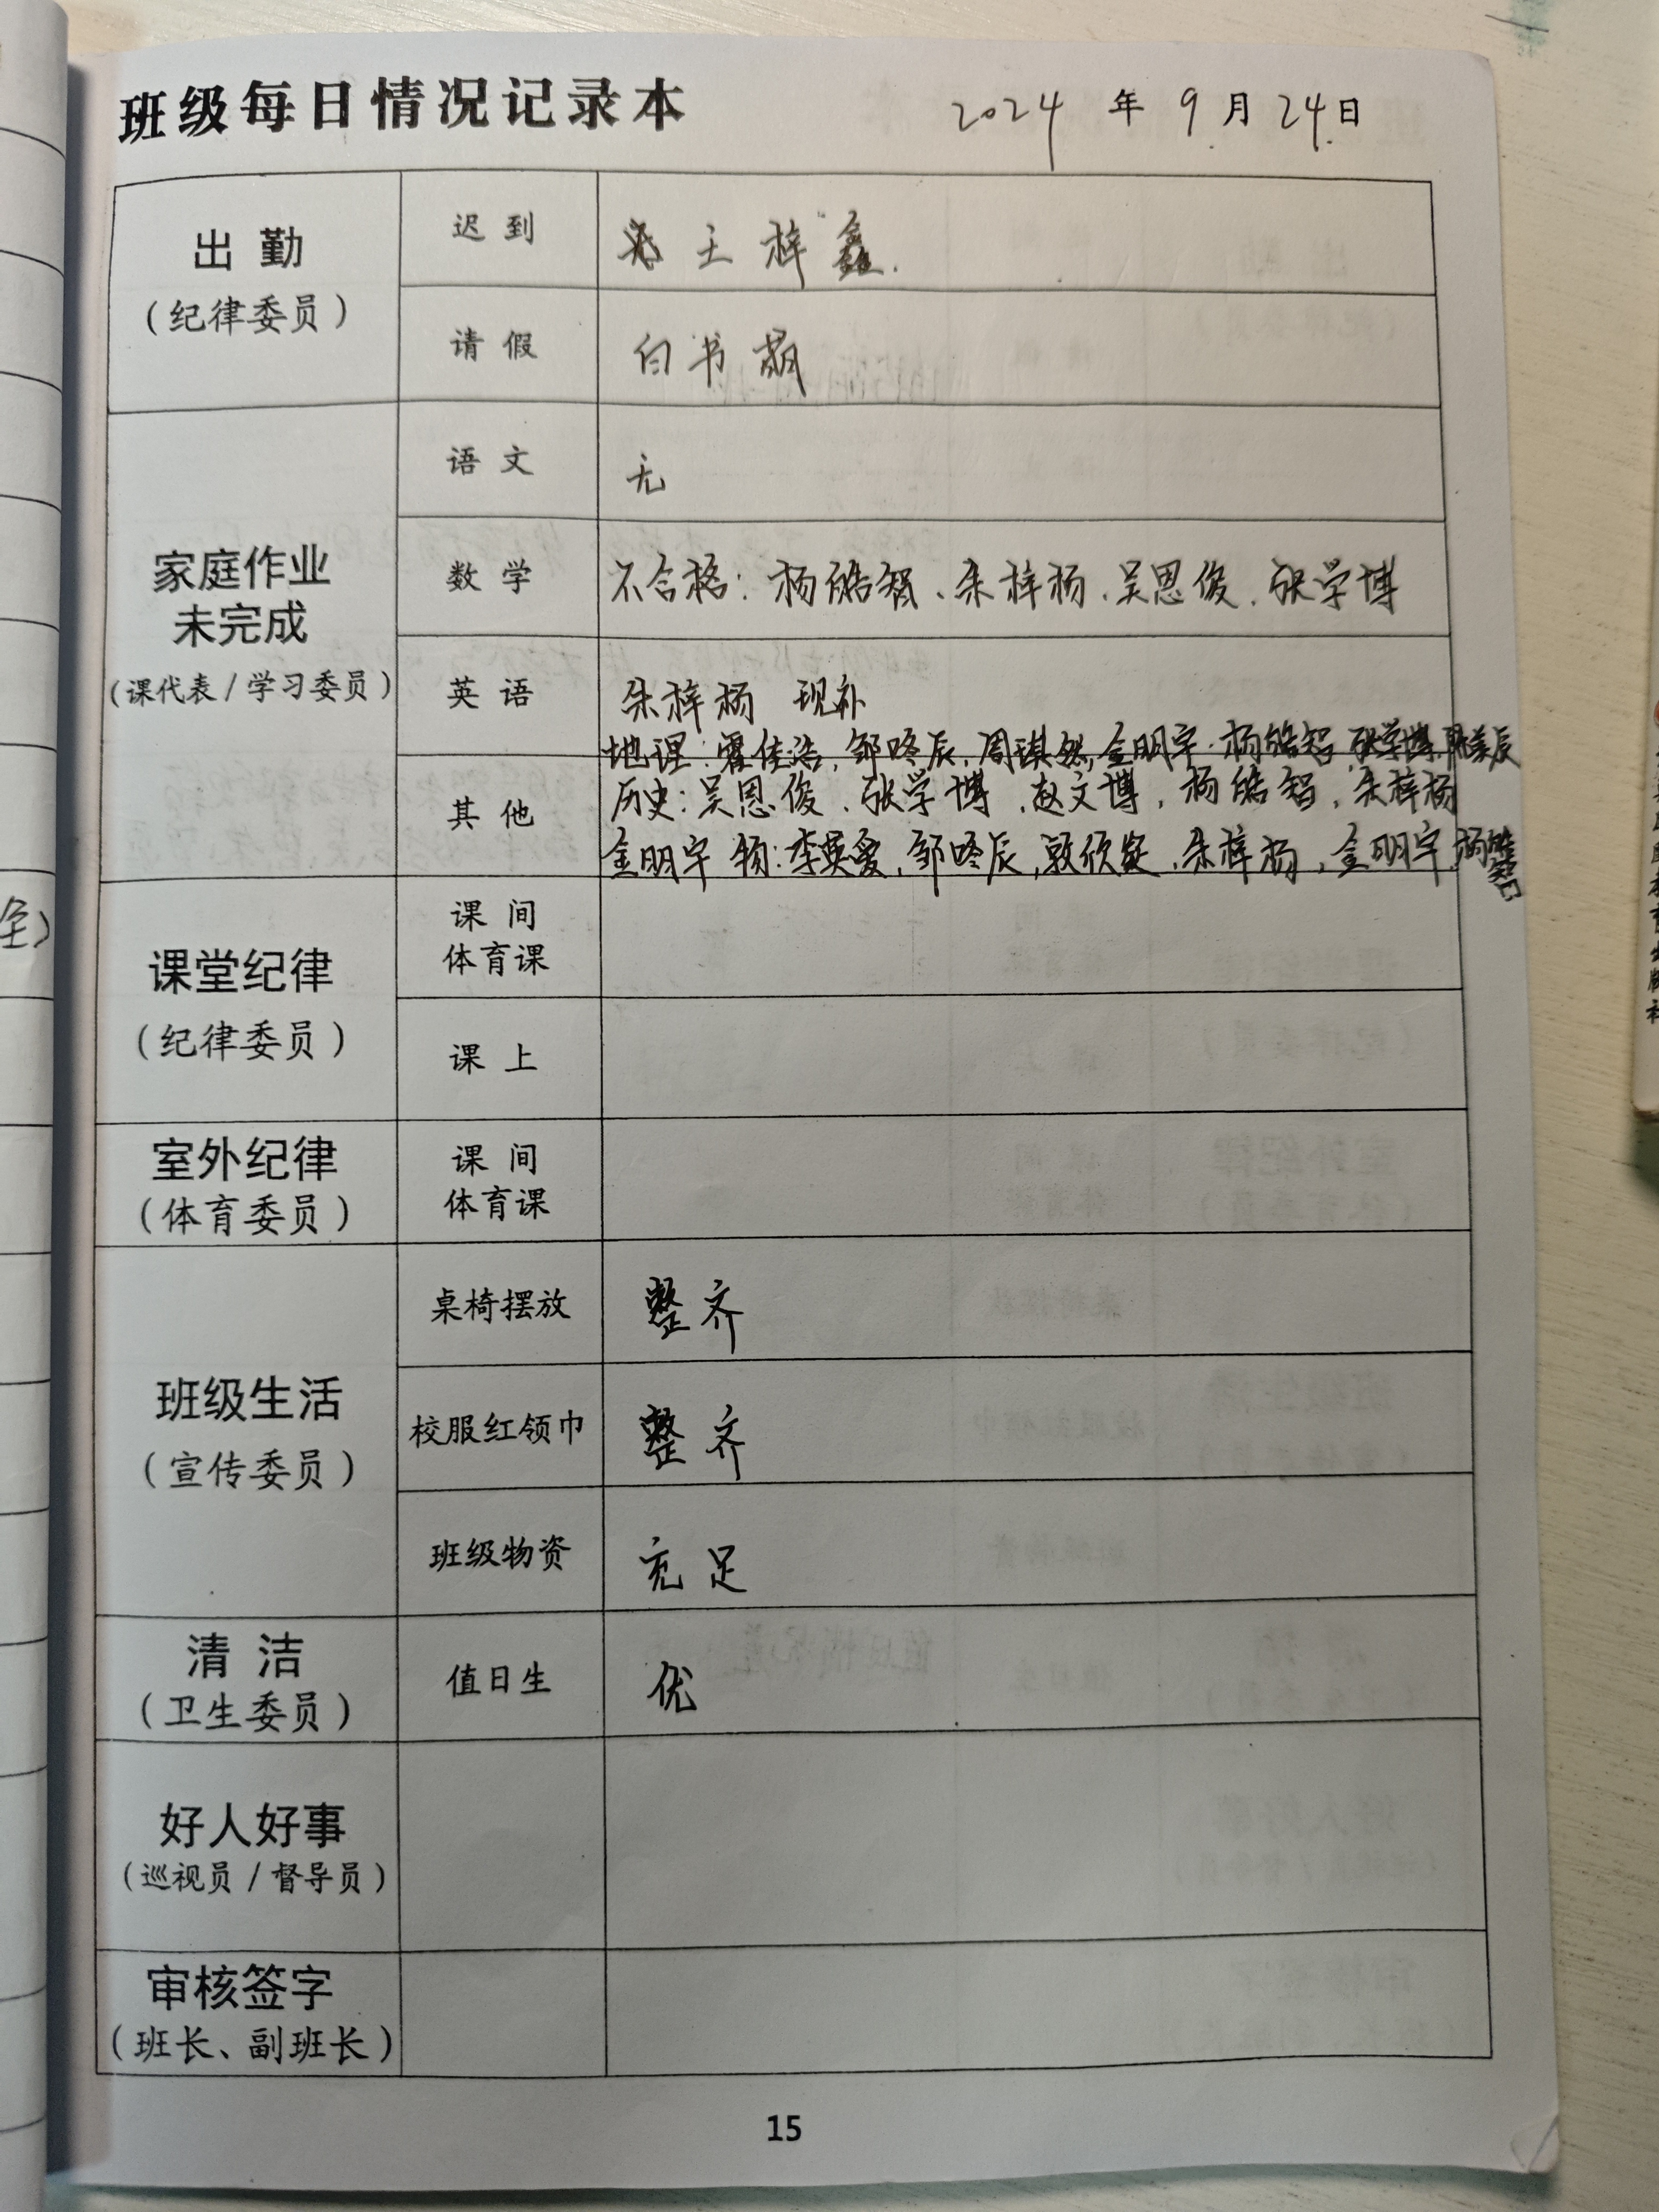 班级每日情况记录本 2024 年 9 月 24 日
出勤
(纪律委员)
迟到 王梓鑫.
请假 白书萌
家庭作业
未完成
(课代表/学习委员)
语文 无
数学 不合格: 杨皓智、朱梓杨、吴恩俊、张学博
英语 朱梓杨 现补
地理: 霍佳浩, 邹咚辰, 周琪然, 金明宇. 杨皓智, 张学博,
其他
历史: 吴恩俊、张学博、赵文博, 杨皓智, 朱梓杨
金明宇 物: 李奕爱, 邹咚辰, 敦欣凝, 朱梓杨, 金明宇, 杨皓智
课堂纪律
(纪律委员)
课间
体育课
课上
室外纪律
(体育委员)
课间
体育课
班级生活
(宣传委员)
桌椅摆放 整齐
校服红领巾 整齐
班级物资 充足
清洁
(卫生委员)
值日生 优
好人好事
(巡视员/督导员)
审核签字
(班长、副班长)
15